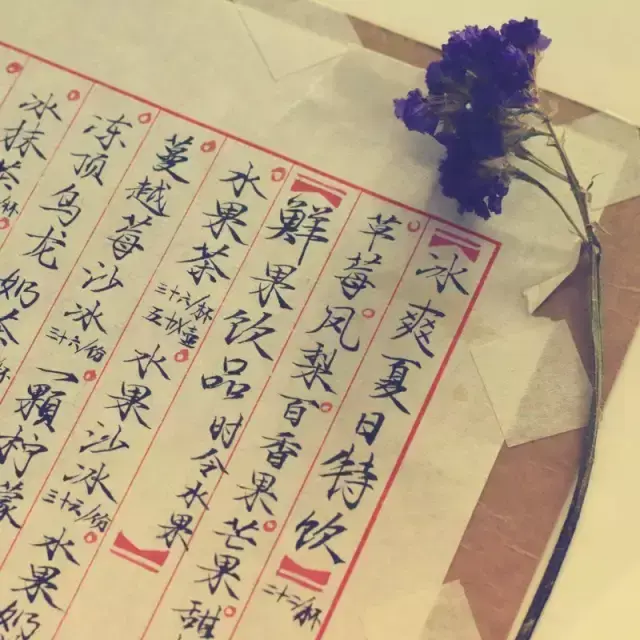 冰爽夏日特饮
草莓 凤梨 百香果 芒果 甜
鲜果饮品 时令水果
水果茶 三十六/杯 水果沙冰 三十六/份 水果奶
蔓越莓沙冰 三十六/份 一颗柠檬
冻顶乌龙奶茶
冰抹茶